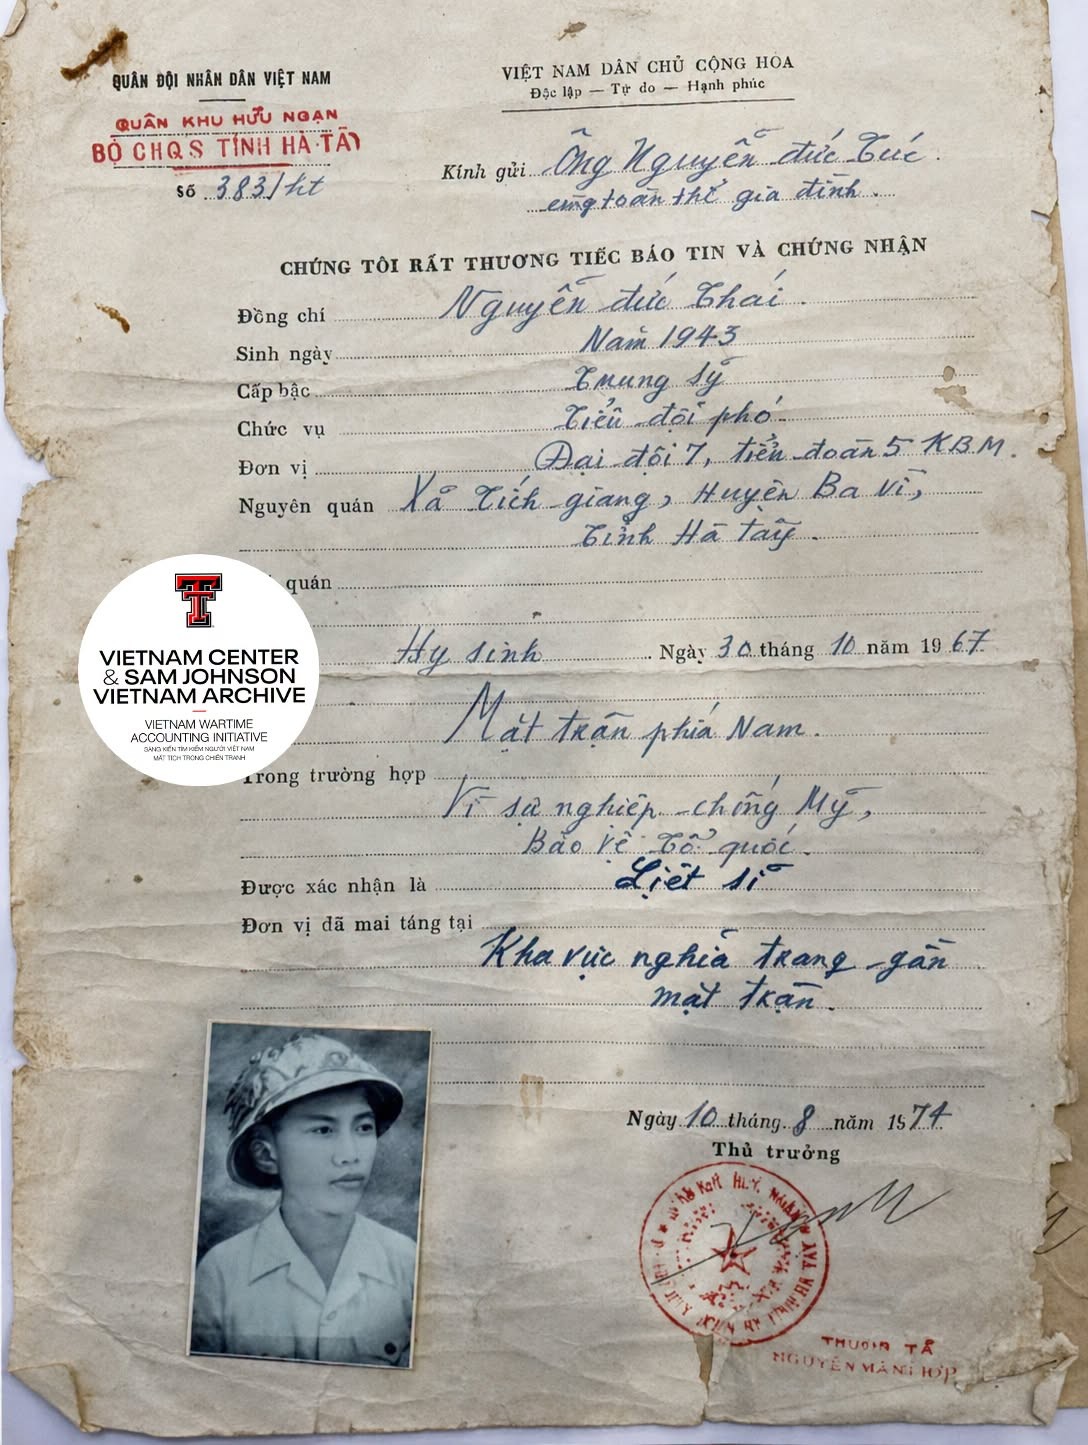 QUÂN ĐỘI NHÂN DÂN VIỆT NAM
QUÂN KHU HỮU NGẠN
BỘ CHQS TỈNH HÀ TÂY
Số 383/ht
VIỆT NAM DÂN CHỦ CỘNG HÒA
Độc lập — Tự do — Hạnh phúc
Kính gửi Ông Nguyễn đức Túc.
cùng toàn thể gia đình.
CHÚNG TÔI RẤT THƯƠNG TIẾC BÁO TIN VÀ CHỨNG NHẬN
Đồng chí Nguyễn đức Thái.
Sinh ngày Năm 1943
Cấp bậc Trung sỹ
Chức vụ Tiểu đội phó.
Đơn vị Đại đội 7, tiểu đoàn 5 KBM.
Nguyên quán Xã Tích giang, Huyện Ba Vì,
Tỉnh Hà tây.
quán
Hy sinh. Ngày 30 tháng 10 năm 1967.
Mặt trận phía Nam.
Trong trường hợp
Vì sự nghiệp chống Mỹ,
Bảo vệ Tổ quốc.
Được xác nhận là Liệt sĩ
Đơn vị đã mai táng tại
Khu vực nghĩa trang gần
mặt trận.
VIETNAM CENTER
& SAM JOHNSON
VIETNAM ARCHIVE
VIETNAM WARTIME
ACCOUNTING INITIATIVE
SÁNG KIẾN TÌM KIẾM NGƯỜI VIỆT NAM
MẤT TÍCH TRONG CHIẾN TRANH
Ngày 10 tháng 8 năm 1974.
Thủ trưởng
THƯỢNG TÁ
NGUYỄN MẠNH HỢP